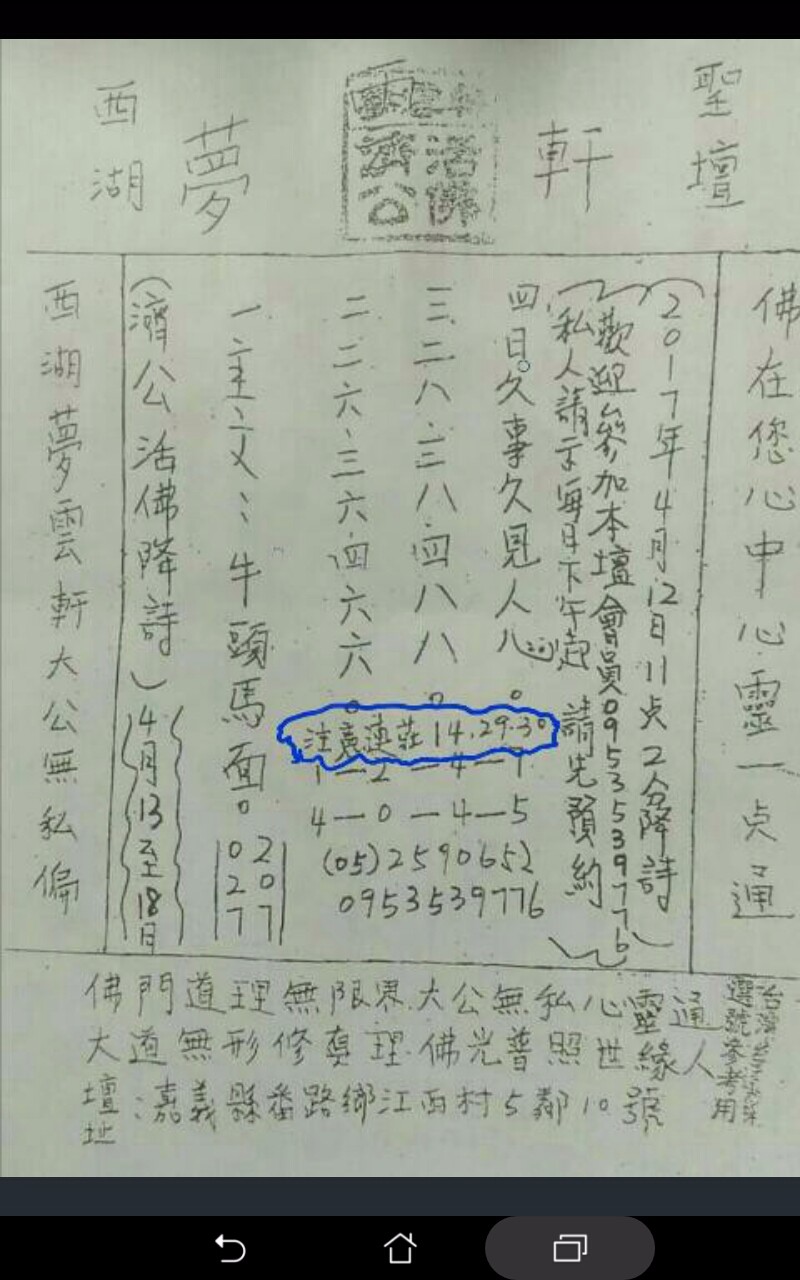 西湖 夢 雲 軒 聖壇
濟公活佛
佛在您心中心靈一点通
(2017年4月12日11点2分降詩)
(歡迎參加本壇會員0953539776
私人請示每日下午起 請先預約)
四、日久事久見人心。
三、二八、三八、四八八。
二、二六、三六、四六六。
一、主文:牛頭馬面。
注意連莊 14.29.30
1—2—4—7
4—0—4—5
(05)2590652
0953539776
02
20
77
(濟公活佛降詩)
4月13至18日
西湖夢雲軒大公無私偏
佛門道理無限界.大公無私心靈通
大道無形修真理.佛光普照世緣人
壇址:嘉義縣番路鄉江西村5鄰10號
選號參考用